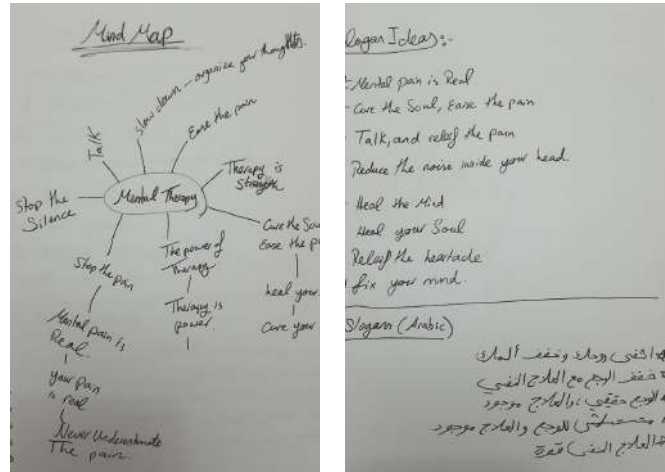 Mind Map
slow down - organize your thoughts.
Talk
Ease the pain
Therapy is
Strength
Mental Therapy
Stop the
Silence
Cure the Sou
Ease the p
heal your
Cure your
The power of
Therapy
Therapy is
power.
Stop the pain
Mental pain is
Real.
your pain
is real
Never Underestimate
The pain.
logan Ideas:-
Mental pain is Real
- Cure the Soul, Ease the pain
Talk, and releif the pain
Reduce the noise inside your head.
Heal the Mind
Heal your Soul
Releif the heartache
fix your mind.
Slogans (Arabic)
اشفي روحك وخفف ألمك
خفف الوجع مع العلاج النفسي
الوجع حقيقي، والعلاج موجود
للوجع والعلاج موجود
العلاج النفسي قوة